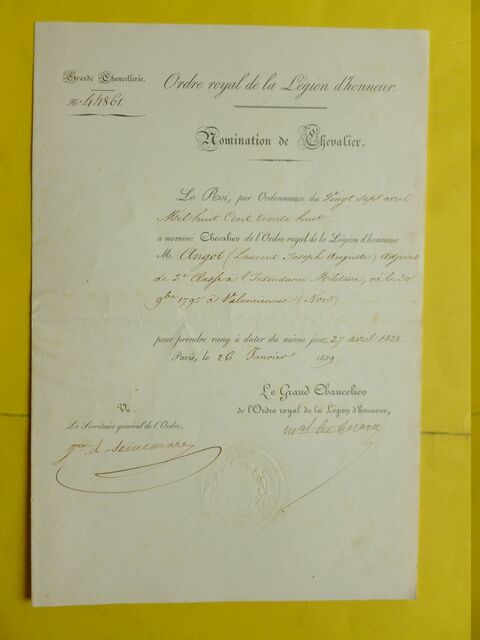 Grande Chancellerie.
N° 44861
Ordre royal de la Légion d'honneur.
Nomination de Chevalier.
Le Roi, par Ordonnance du Vingt sept avril
Mil huit Cent trente huit
a nommé Chevalier de l'Ordre royal de la Légion d'honneur
M. Angot (Laurent Joseph Auguste) Adjoint
de 2e Classe à l'Intendance Militaire, né le 30
9bre 1795 à Valenciennes (Nord)
pour prendre rang à dater du même jour, 27 avril 1838
Paris, le 26 Janvier 1839
Le Grand Chancelier
de l'Ordre royal de la Légion d'honneur,
Vu
Le Secrétaire général de l'Ordre,